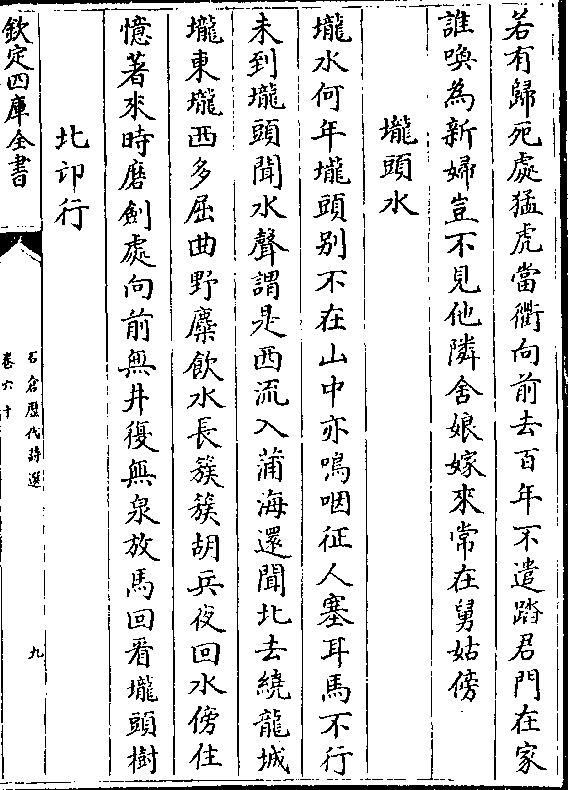 若有歸死處猛虎當衢向前去百年不遣踏君門在家
誰喚為新婦豈不見他隣舍娘嫁來常在舅姑傍
壠頭水
壠水何年壠頭别不在山中亦嗚咽征人塞耳馬不行
未到壠頭聞水聲謂是西流入蒲海還聞北去繞龍城
壠東壠西多屈曲野麋飲水長簇簇胡兵夜回水傍住
憶著來時磨劍處向前無井復無泉放馬回看壠頭樹
北邙行
欽定四庫全書
石倉歷代詩選
卷六十
九